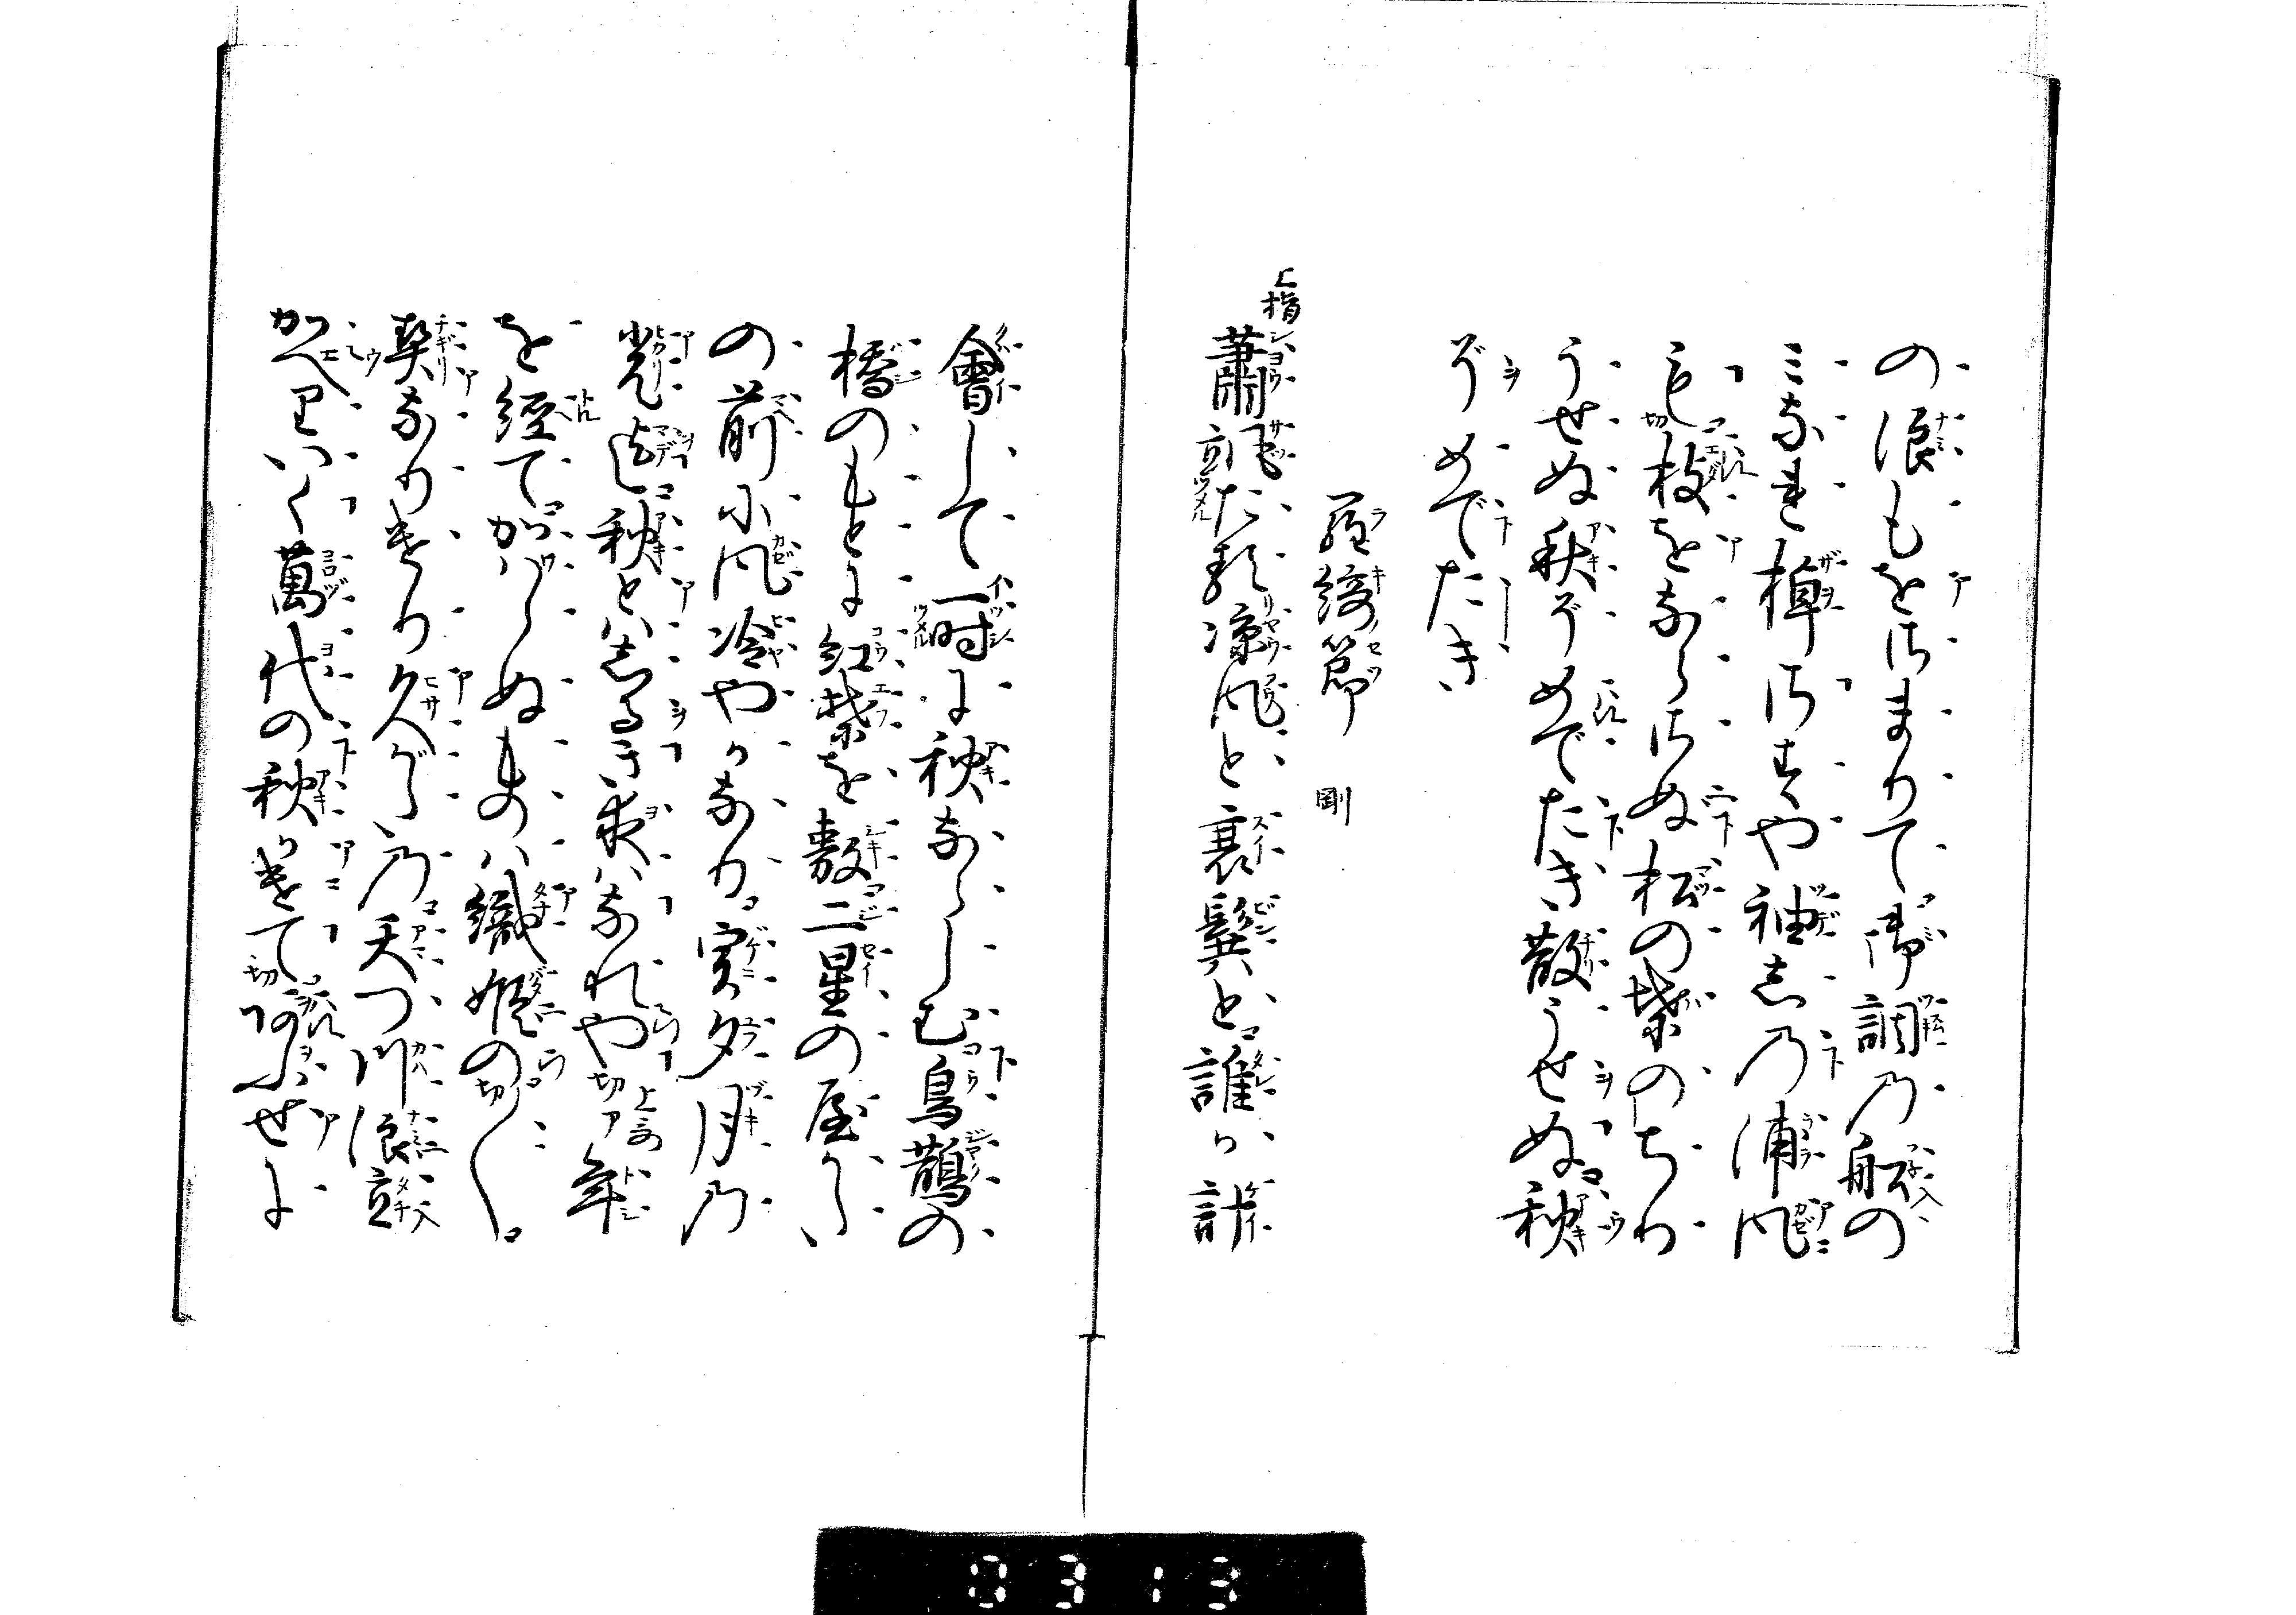 の浪もをさまりて御調乃舩の
ミなれ棹さすや袖志乃浦風
も枝をならさぬ松の葉のちり
うせぬ秋ぞめでたき散うせぬ秋
ぞめでたき
羅綺節 剛
上指
蕭颯たる凉風と衰鬢と誰か計
會して一時に秋ならしむ烏鵲の
橋のもとに紅葉を敷二星の屋かた
の前に風冷やかなり実夕月乃
光迄秋とハしるき夜ハなれや年
を経てかハらぬものハ織姫の〱
契なりけり久かた乃天つ川浪立
かへりいく萬代の秋かけて